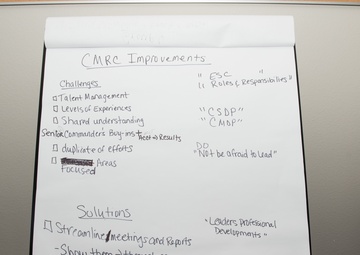 CMRC Improvements
Challenges
" ESC "
" Roles & Responsibilities "
Talent Management
Levels of Experiences
Shared understanding
"CSDP"
"CMDP"
Senior Commander's Buy-ins + → Results
duplicate of efforts
DO
"Not be afraid to lead"
Areas
focused
Solutions
Streamline/meetings and Reports
"Leaders Professional
Developments"
-Show them